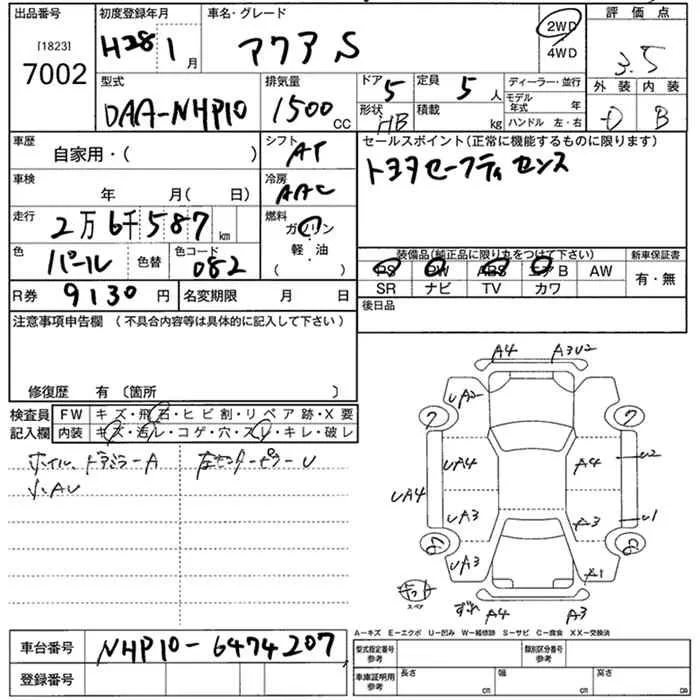 出品番号
[1823]
7002
初度登録年月
H28 1 月
車名・グレード
アクア S
2WD
4WD
評価点
3.5
外装 内装
D B
型式
DAA-NHP10
排気量
1500 CC
ドア 5
形状 HB
定員 5 人
積載 kg
ディーラー・並行
モデル年式 年
ハンドル 左・右
車歴
自家用・( )
シフト
AT
セールスポイント(正常に機能するものに限ります)
トヨタセーフティセンス
車検
年 月( 日)
冷房
AAC
走行
2万6千587 km
燃料
ガソリン
軽・油
色
パール
色替
色コード
082
装備品(純正品に限り丸をつけて下さい)
PS PW ABS エアB AW
SR ナビ TV カワ
新車保証書
有・無
R券
9130 円
名変期限 月 日
後日品
注意事項申告欄 (不具合内容等は具体的に記入して下さい)
修復歴 有 〔箇所 〕
検査員記入欄
FW キズ・飛石・ヒビ割・リペア跡・X要
内装 キズ・汚レ・コゲ・穴・スレ・キレ・破レ
ホイル、ドアミラーA 左センターピラーU
小AU
A4 A3U2
UA2
7 7
UA4 A4 U2
UA4
UA3 A3 U1
UA3 A1
キット
スペア
ずれ A4 A3
A－キズ E－エクボ U－凹み W－補修跡 S－サビ C－腐食 XX－交換済
車台番号
NHP10-6474207
登録番号
型式指定番号
参考
類別区分番号
参考
車庫証明用
参考
長さ cm 幅 cm 高さ cm